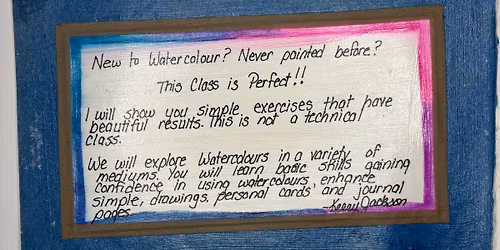 New to Watercolour? Never painted before?
This Class is Perfect!!
I will show you simple exercises that have
beautiful results. This is not a technical
class.
We will explore Watercolours in a variety of
mediums. You will learn basic skills gaining
confidence in using watercolours, enhance
simple, drawings, personal cards and journal
pages.
-Kerry Jackson